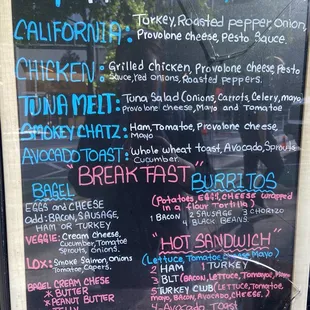 CALIFORNIA: Turkey, Roasted pepper, onion,
Provolone cheese, Pesto Sauce.
CHICKEN: Grilled chicken, Provolone cheese, Pesto
Sauce, red onions, Roasted peppers.
TUNA MELT: Tuna Salad (onions, Carrots, Celery, mayo
Provolone cheese, Mayo and Tomatoe
SMOKEY CHATZ: Ham, Tomatoe, Provolone cheese
Mayo
AVOCADO TOAST: whole wheat toast, Avocado, Sprouts
Cucumber.
"BREAKFAST"
BAGEL
EGGS and CHEESE
add: BACON, SAUSAGE,
HAM or TURKEY
VEGGIE: Cream cheese,
Cucumber, Tomatoe
Sprouts, onions.
LOX: Smoke Salmon, onions
Tomatoe, Capers.
BAGEL CREAM CHESE
* BUTTER
* PEANUT BUTTER
JELLY
BURRITOS
(Potatoes, EGG, CHEESE wrapped
in a flour Tortilla)
1 BACON 2 SAUSAGE 3 CHORIZO
4 BLACK BEANS
"HOT SANDWICH"
(Lettuce, Tomatoe, Cheese Mayo)
2 HAM 1 TURKEY
3 BLT (BACON, Lettuce, Tomatoe, Mayo)
5 TURKEY CLUB (Lettuce, Tomatoe,
mayo, Bacon, Avocado, Cheese.)
4 Avocado Toast